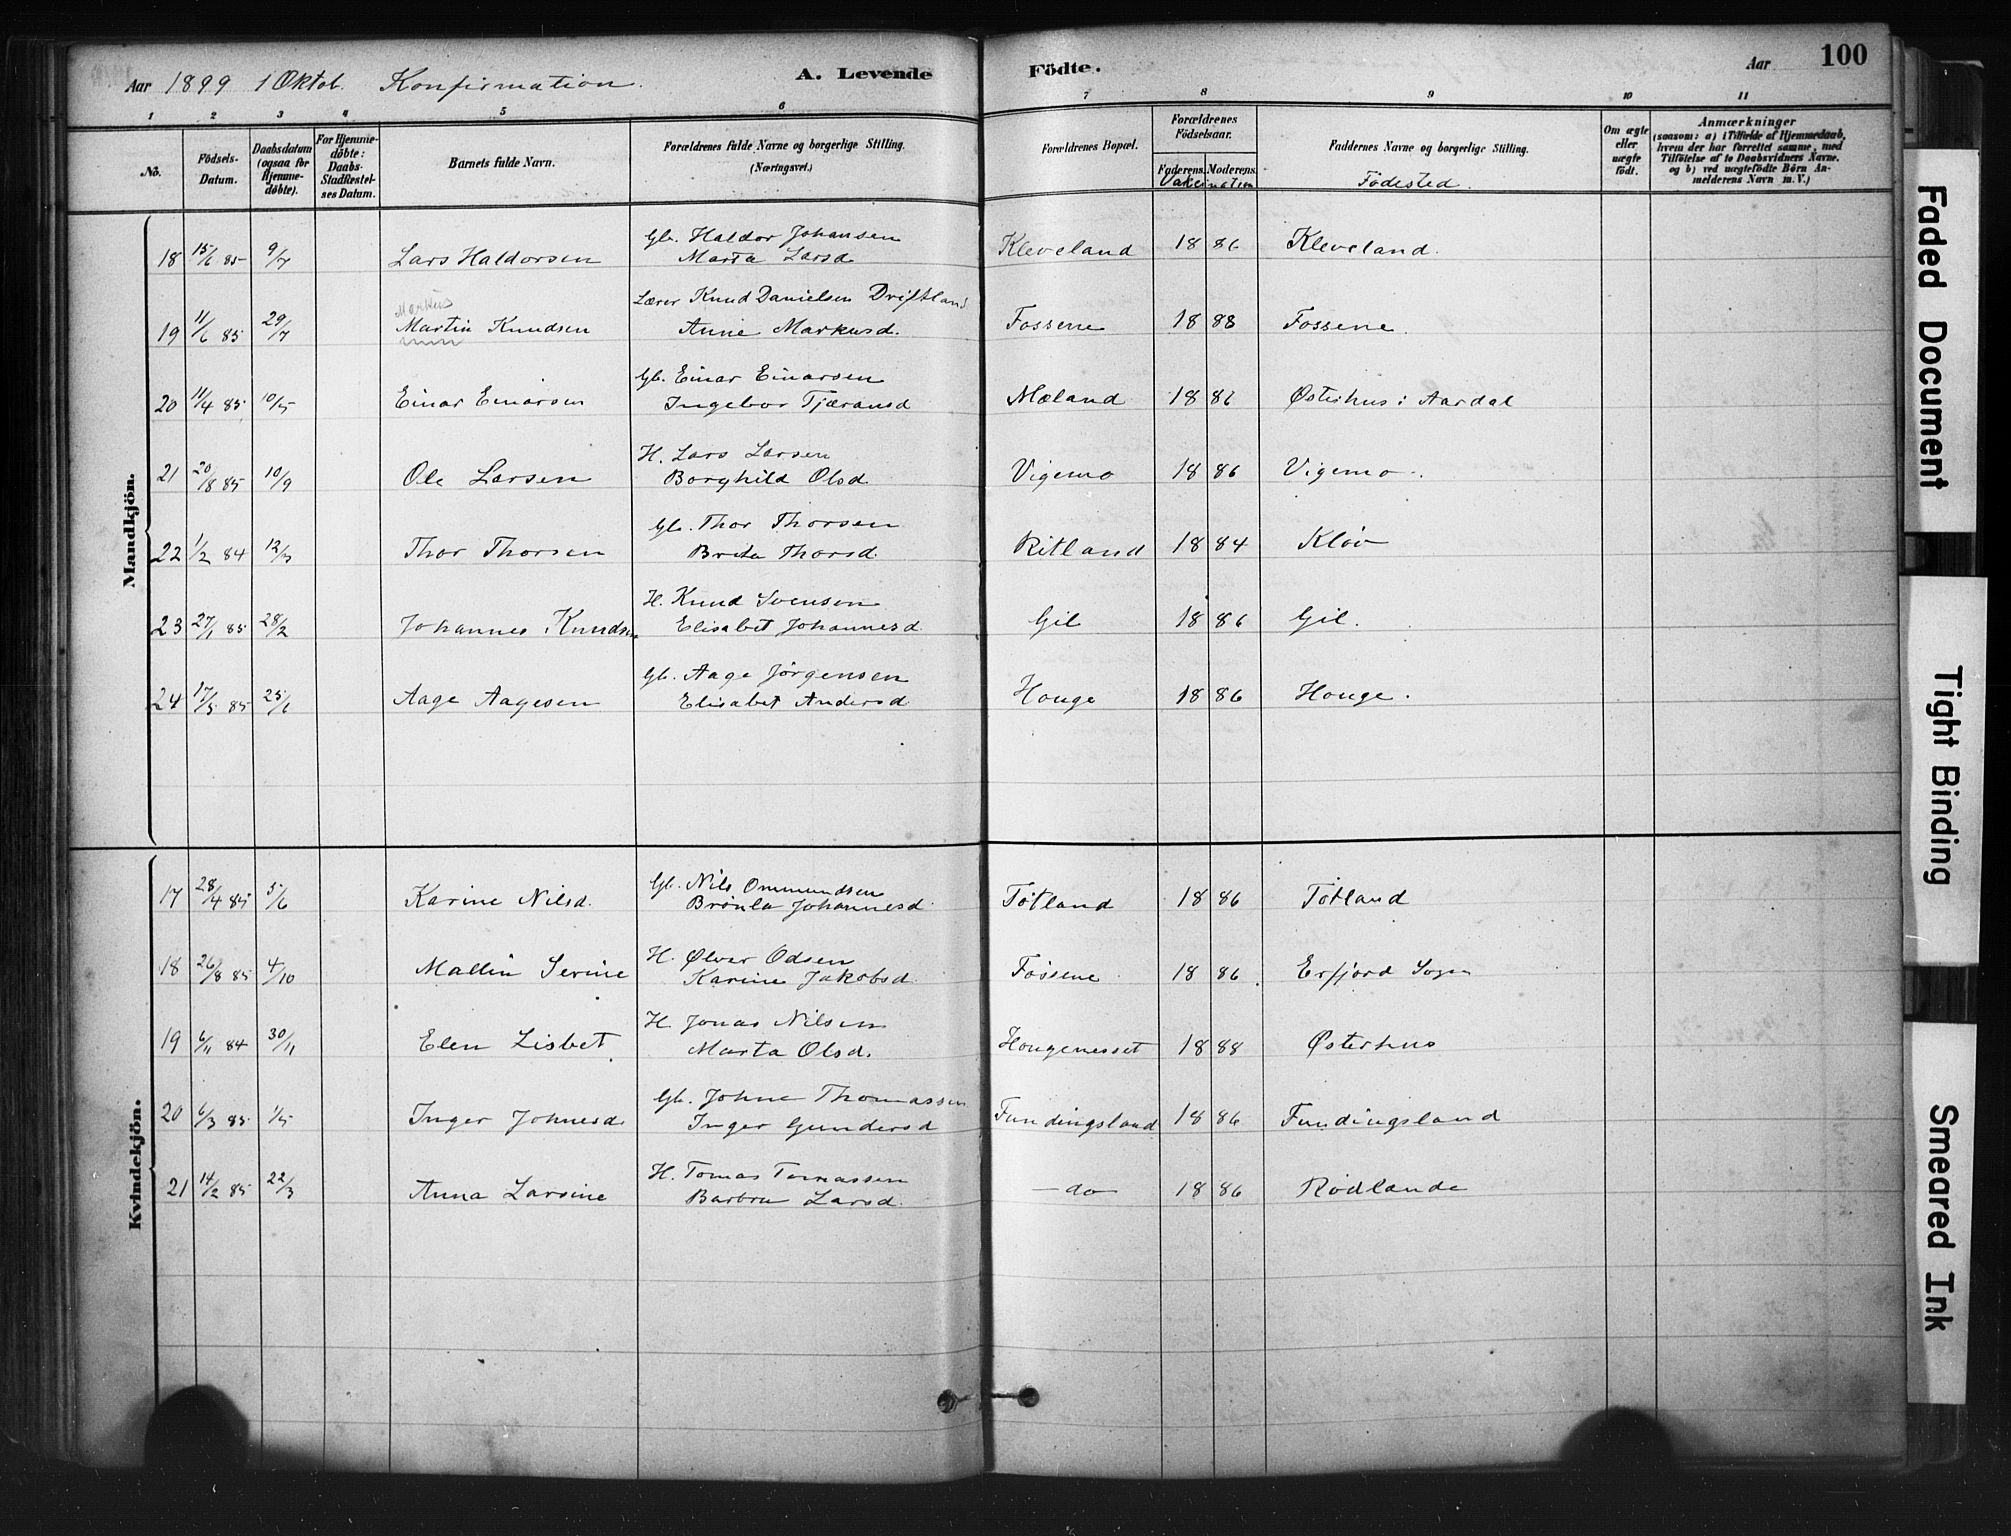 Aar 1899 1 Oktob. Konfirmation. A. Levende Födte. Aar 100
1 2 3 4 5 6 7 8 9 10 11
No. Födsels-Datum. Daabsdatum (ogsaa for Hjemme-döbte). For Hjemme-döbte: Daabs-Stadfæstel-ses Datum. Barnets fulde Navn. Forældrenes fulde Navne og borgerlige Stilling. (Næringsvei.) Forældrenes Bopæl. Forældrenes Födselsaar. Faderens. Moderens. Faddernes Navne og borgerlige Stilling. Om ægte eller uægte födt. Anmærkninger (saasom: a) i Tilfælde af Hjemmedaab, hvem der har forrettet samme, med Tilföielse af to Daabsvidners Navne. og b) ved uægtefödte Börn An-melderens Navn m. V.)
Vakcination Födested.
Mandkjön.
18 15/6 85 9/7 Lars Haldorsen Gb. Haldor Johansen Kleveland 18 86 Kleveland.
Marta Larsd
Markus
19 11/6 85 29/7 Martin Knudsen Lærer Knud Danielsen Driftland Fossene 18 88 Fossene.
Anne Markusd.
20 11/4 85 10/5 Einar Einarsen Gb. Einar Einarsen Mæland 18 86 Østerhus i Aardal
Ingebor Tjæransd
21 20/8 85 10/9 Ole Larsen H. Lars Larsen Vigemo 18 86 Vigemo.
Borghild Olsd.
22 1/2 84 12/3 Thor Thorsen Gb. Thor Thorsen Ritland 18 84 Kløv
Brita Thorsd.
23 27/1 85 28/2 Johannes Knudsen H. Knud Svensen Gil 18 86 Gil.
Elisabet Johannesd.
24 17/5 85 25/6 Aage Aagesen Gb. Aage Jörgensen Houge 18 86 Houge.
Elisabet Andersd.
Kvindekjön.
17 28/4 85 5/6 Karine Nilsd. Gb. Nils Ommundsen Tötland 18 86 Tötland
Brönla Johannesd.
18 26/8 85 4/10 Mallin Serine H. Ølver Odsen Fossene 18 86. Erfjord Sogn
Karine Jakobsd.
19 6/11 84 30/11 Elen Lisbet H. Jonas Nilsen Hougenesset 18 88 Østerhus
Marta Olsd.
20 6/3 85 1/5 Inger Johnesd. Gb. Johne Thomassen Fundingsland 18 86 Fundingsland
Inger Gundersd
21 14/2 85 22/3 Anna Larsine H. Tomas Tomassen —do— 18 86 Rödlande
Barbra Larsd.
Faded Document
Tight Binding
Smeared Ink